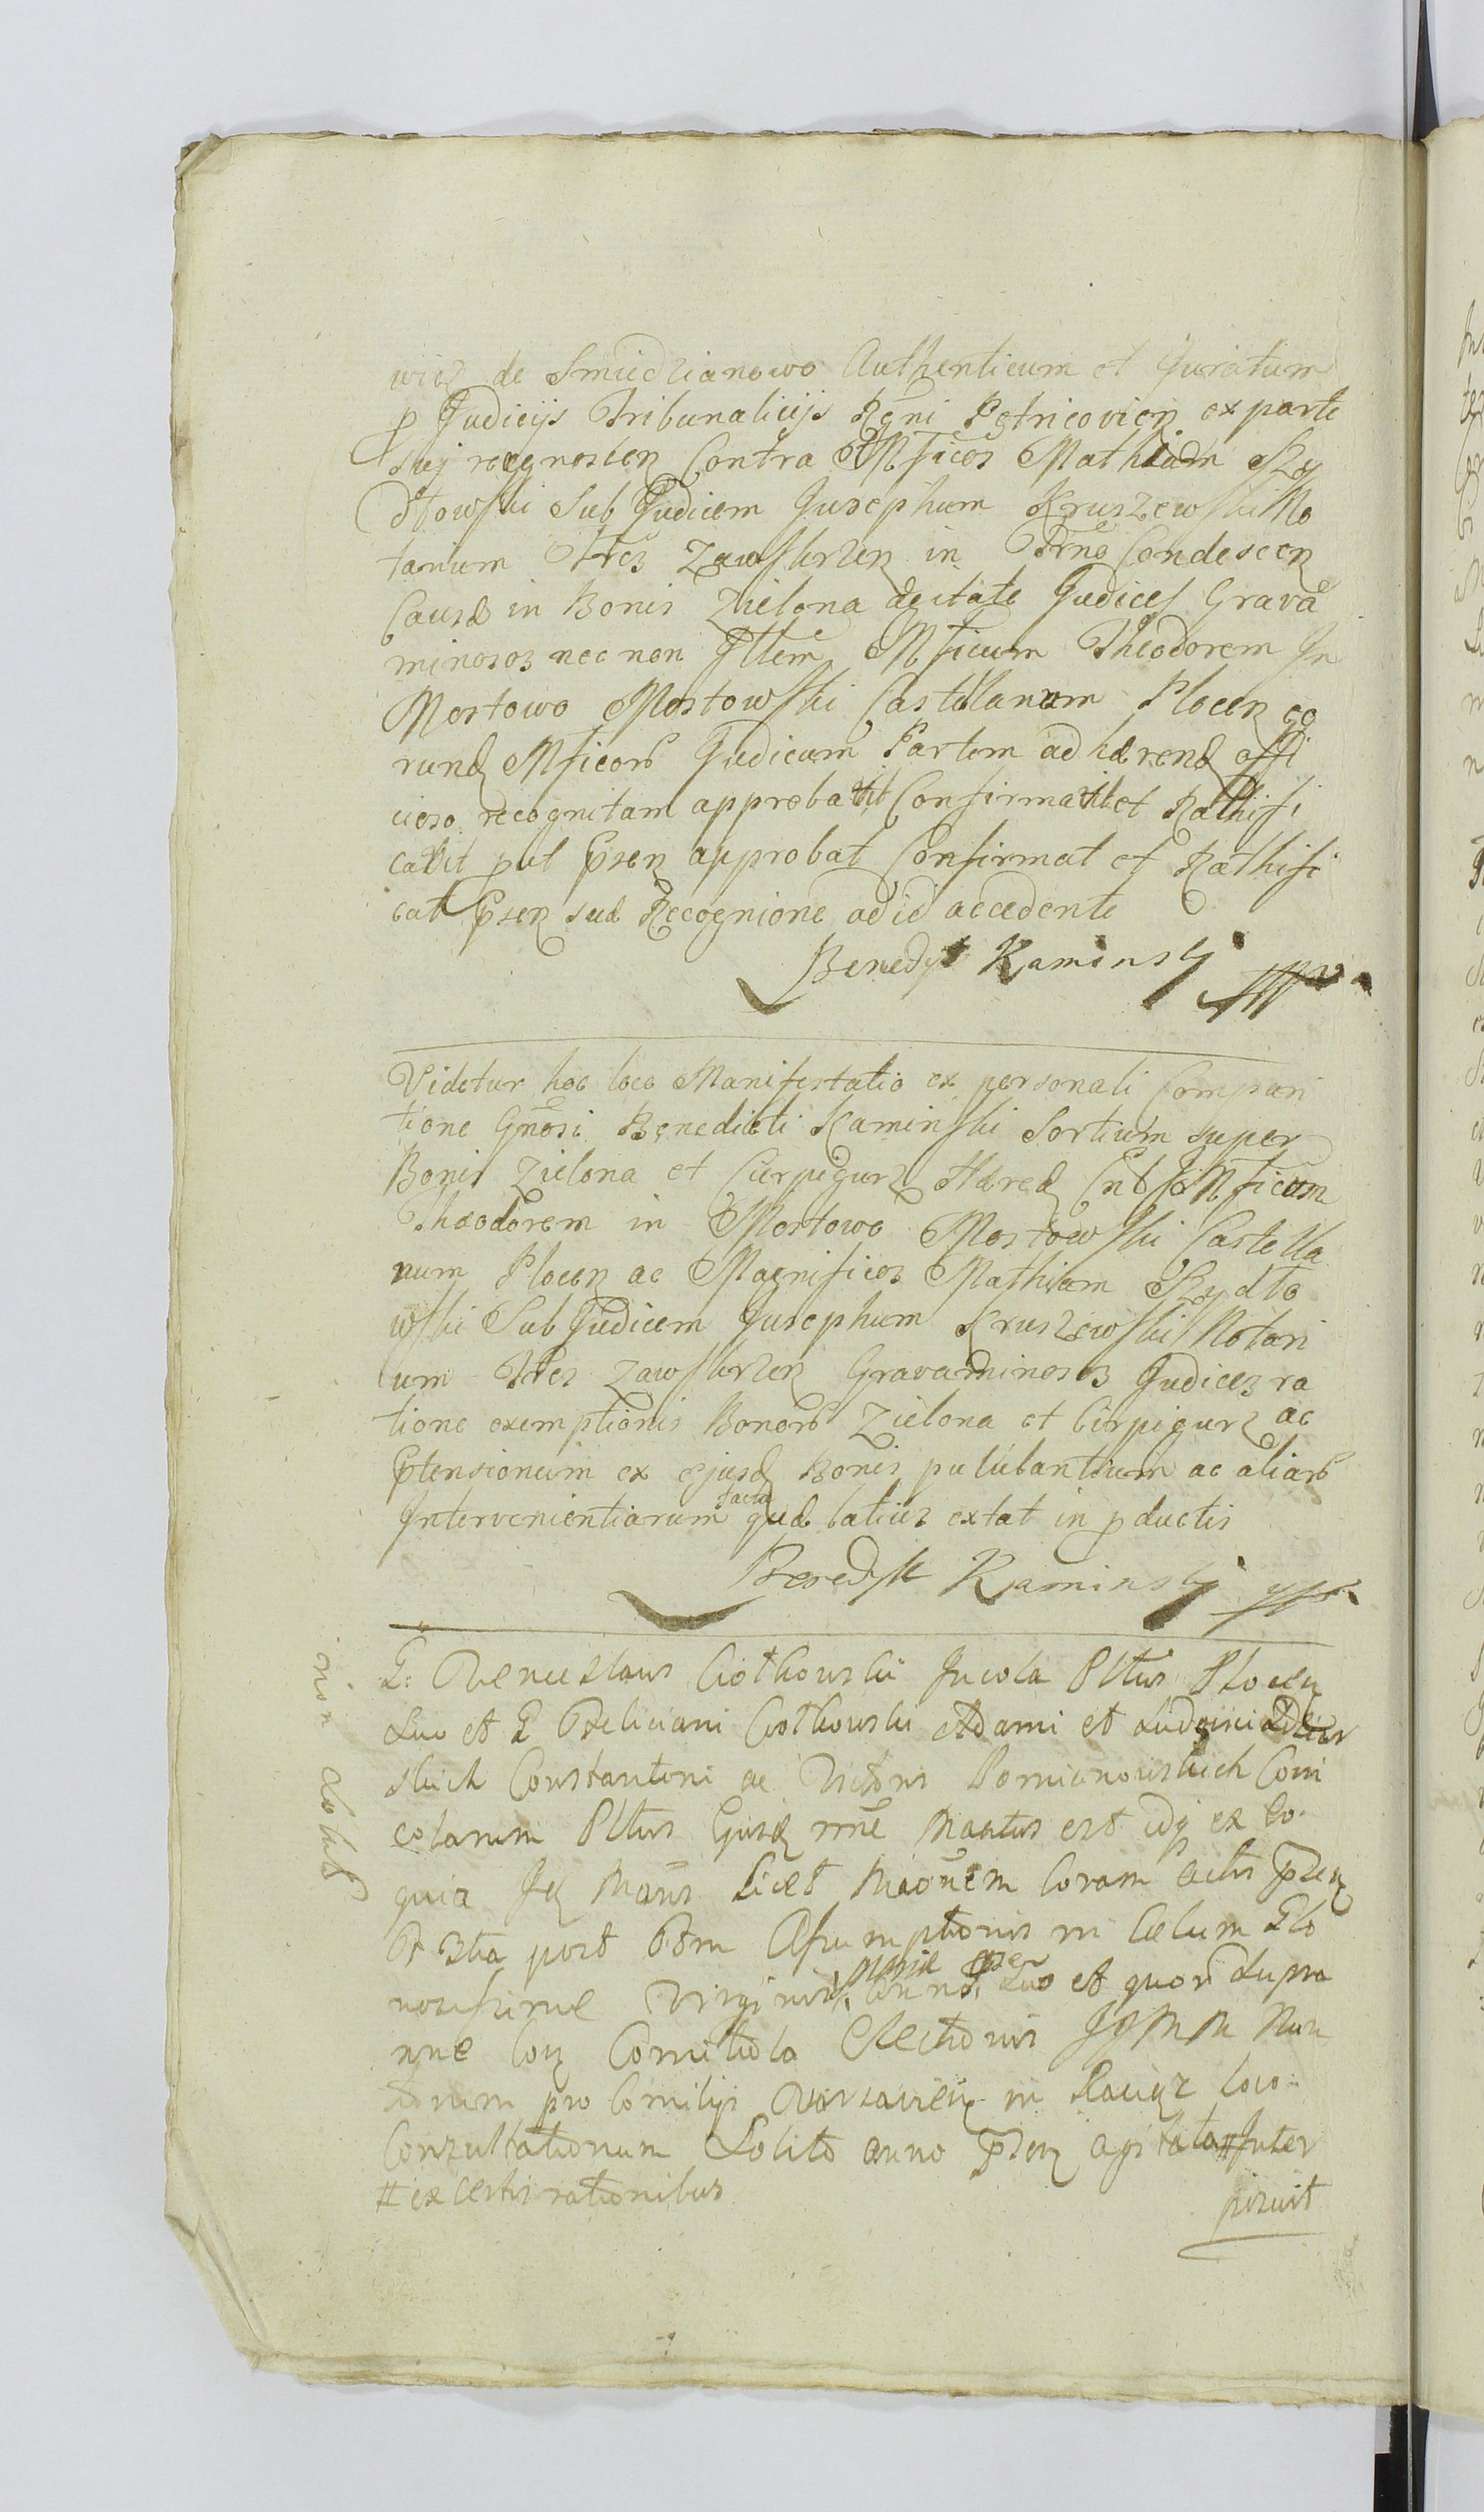 wicz de Smiedzianowo Authenticum et Juratum
p Judicijs Tribunalicijs Rgni Petricovien ex parte
suj recgnoscen Contra Mficos Mathiam Rży
dtowski Sub Judicem Jusephum Kruszewski No
tarium Trēs Zawskrzen in Trno Condescen
Causæ in Bonis Zielona de state Judices Grava
minosos nec non Jllem Mficum Theodorem Jn
Mostowo Mostowski Castellanum Plocen eo
rund Mficorū Judicum Partem adhærend offi
cioso recognitam approbavit Confirmavit et Rathifi
cavit put Psen approbat Confirmat et Rathifi
cat Psen suæ Recognione ad id accedente
Benedyt Kaminskj
Videtur hoc loco Manifestatio ex personali Compari
tione Gnosi Benedicti Kaminski Sortium super
Bonis Zielona et Cierpigurz Hæred Cnt Mficum
Thæodorem in Mostowo Mostowski Castella
num Plocen ac Magnificos Mathiam Rżydto
wski Sub Judicem Jusephum Kruszewski Notari
um Tres Zawskrzen Gravaminosos Judices ra
tione exemptionis Bonorū Zielona et Cirpigurz ac
Ptensionum ex ejusd Bonis pulubantium ac aliarū
Intervenientiarum facta quæ latius extat in pductis
Benedykt Kaminskj
G: Venceslaus Ciotkowski Jncola Pltus Plocen
Suo et G Feliciani Ciotkowski Adami et Ludovici
skich Constantini ac Victoris Pomianowskich Coin
colarum Pltus Ejusd nne Mantus est idq ex eo
quia Jd Mans Licet Maonem Coram Actis Psen
F 3tia post Ftm Assumptionis in Cælum Glo
riosissimæ Virginis Mariæ Anno Psen Suo et quorū Supra
nne Con Comitiola Electionis JJ M M Nun
tiorum pro Comitijs Varsavien in Raciąz loco
Consultationum Solito anno Psen agitata # Inter
# ex certis rationibus
posuit
non solut